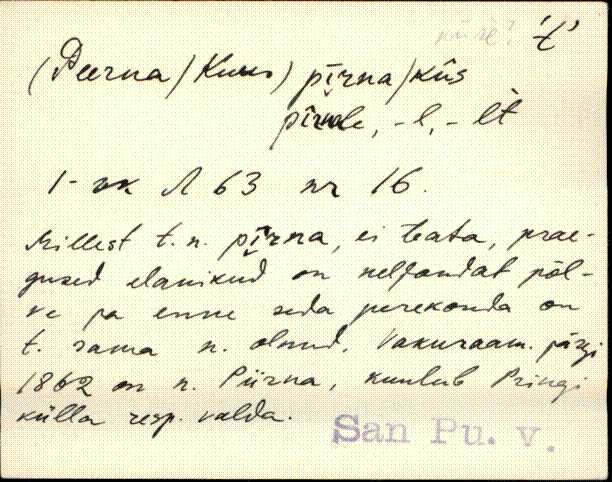 't'
(Peerna/Kuus) pīrna/kūs
pīrnale, -l, -lt
1-vk A 63 nr 16.
Millest t. n. pīrna, ei teata, prae-
gused elanikud on neljandat põl-
ve ja enne seda perekonda on
t. sama n. olnud. Vakuraam. järgi
1862 on n. Piirna, kuulub Pringi
külla resp. valda.
San Pu. v.